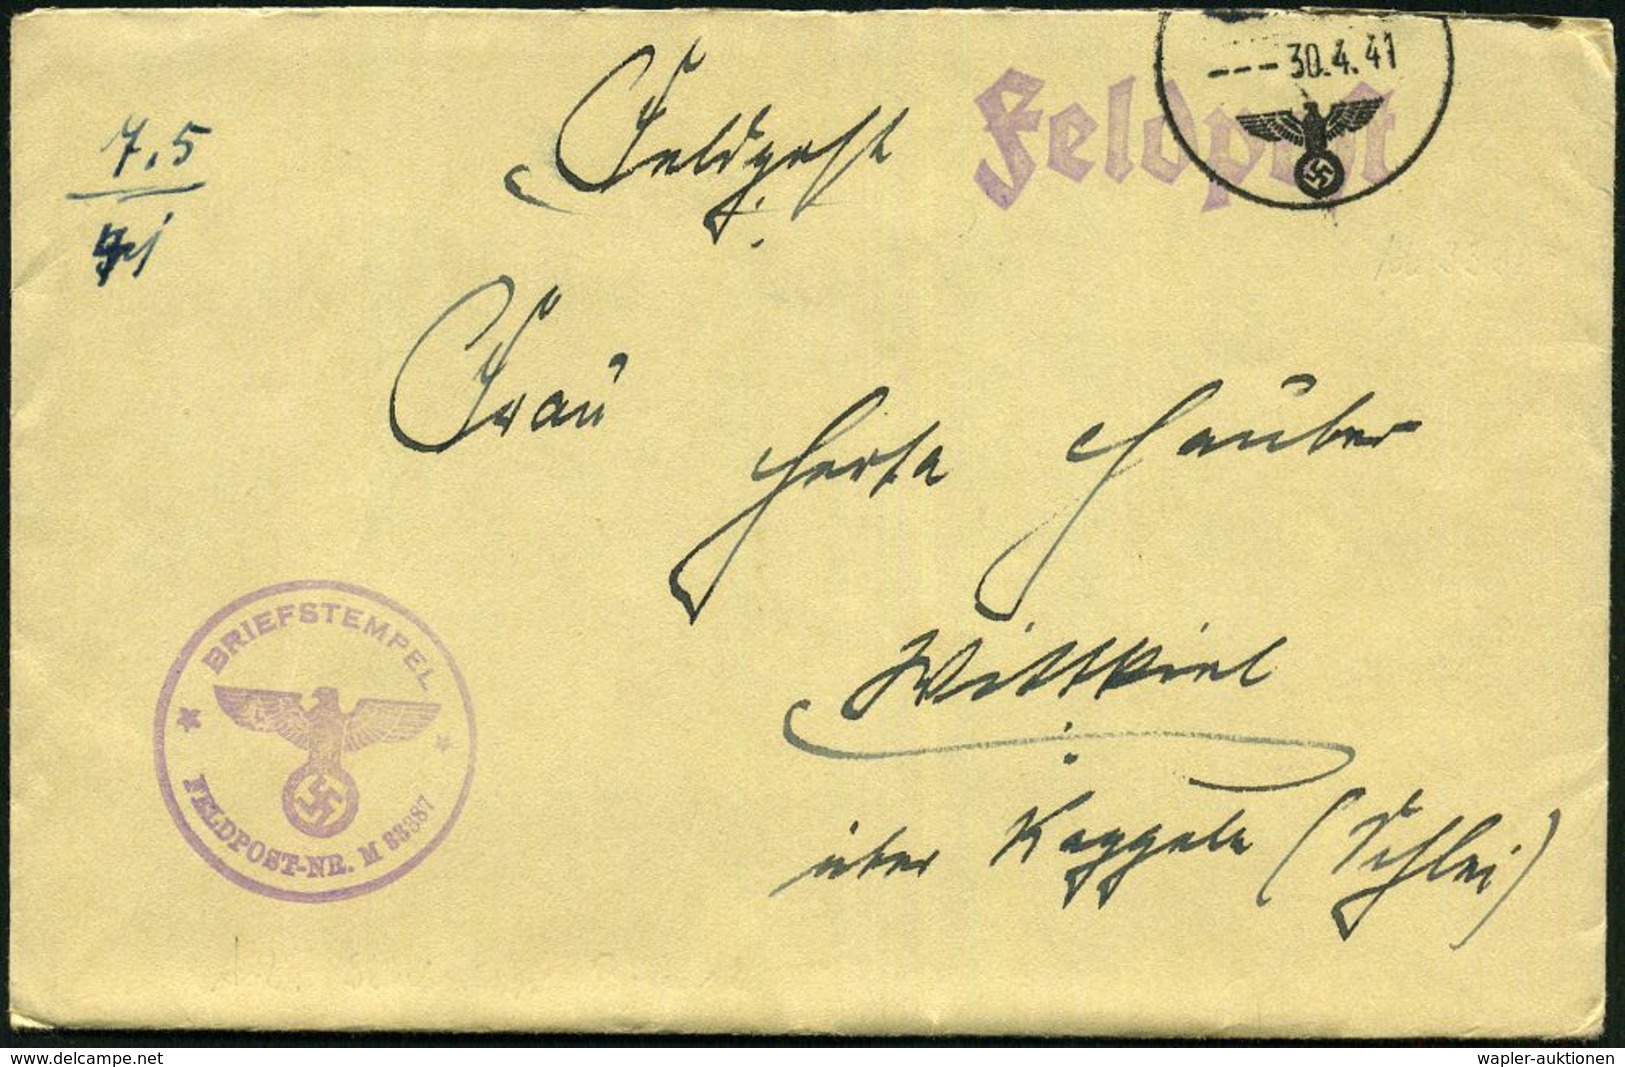 --- 30.4.41
Feldpost
Feldpost
7.5
Frau
Herta Häuber
Wittkiel
über Kappeln (Schlei)
BRIEFSTEMPEL
FELDPOST-NR. M 33387
delcampe.net
wapler-auktionen